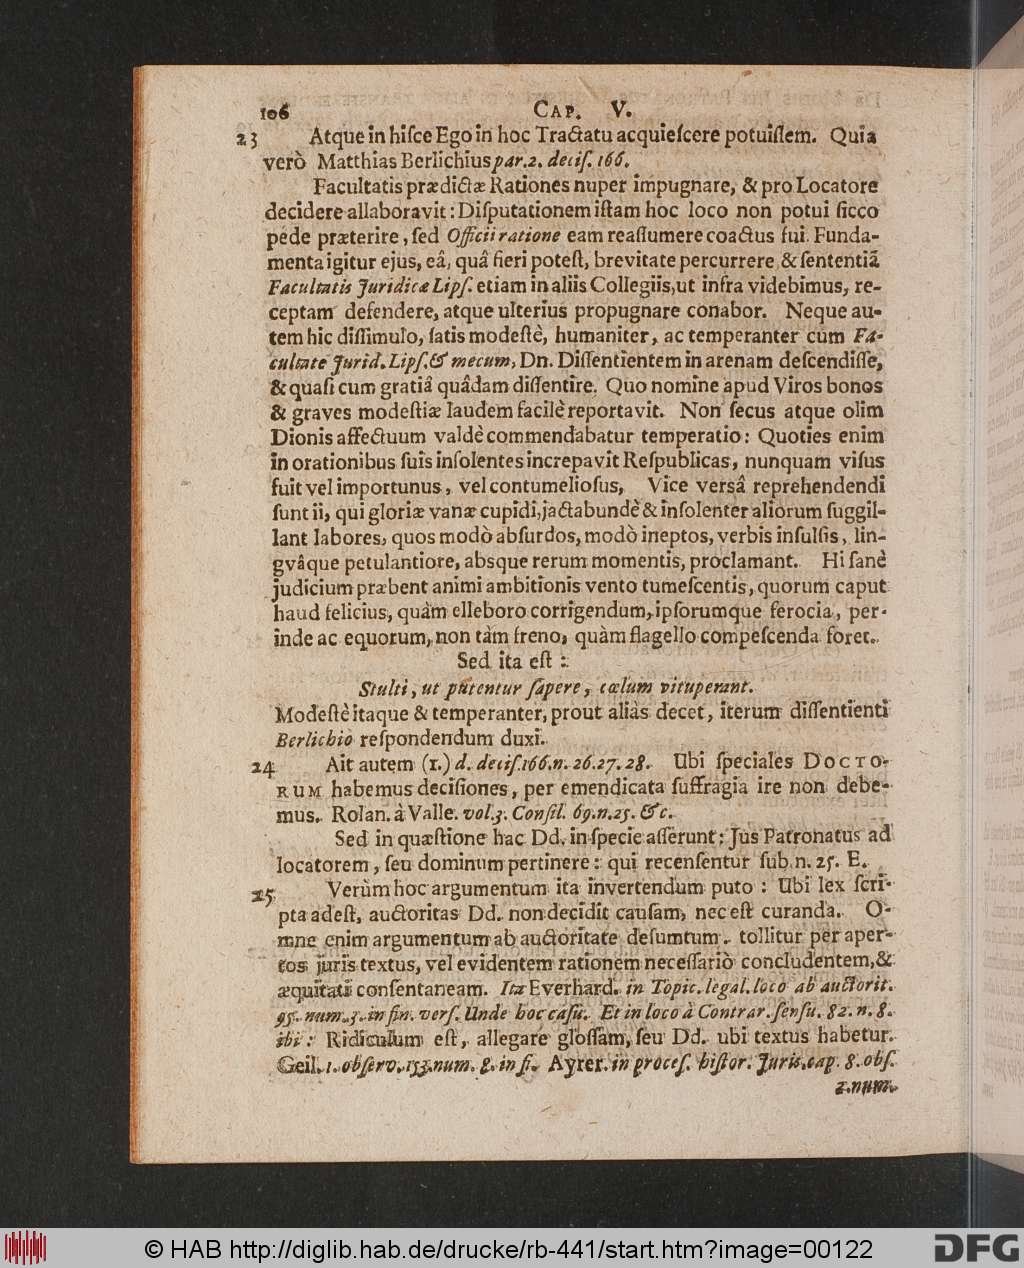 106 CAP. V.
23 Atque in hiſce Ego in hoc Tractatu acquieſcere potuiſſem. Quia
verò Matthias Berlichius par. 2. deciſ. 166.
Facultatis prædictæ Rationes nuper impugnare, & pro Locatore
decidere allaboravit: Diſputationem iſtam hoc loco non potui ſicco
pede præterire, ſed Officii ratione eam reaſſumere coactus fui. Funda-
menta igitur ejus, eâ, quâ fieri poteſt, brevitate percurrere & ſententiã
Facultatis Juridicæ Lipſ. etiam in aliis Collegiis, ut infra videbimus, re-
ceptam defendere, atque ulterius propugnare conabor. Neque au-
tem hic diſſimulo, ſatis modeſtè, humaniter, ac temperanter cum Fa-
cultate Jurid. Lipſ. & mecum, Dn. Diſſentientem in arenam deſcendiſſe,
& quaſi cum gratiâ quâdam diſſentire. Quo nomine apud Viros bonos
& graves modeſtiæ laudem facilè reportavit. Non ſecus atque olim
Dionis affectuum valdè commendabatur temperatio: Quoties enim
in orationibus ſuis inſolentes increpavit Reſpublicas, nunquam viſus
fuit vel importunus, vel contumelioſus, Vice versâ reprehendendi
ſunt ii, qui gloriæ vanæ cupidi, jactabundè & inſolenter aliorum ſuggil-
lant labores, quos modò abſurdos, modò ineptos, verbis inſulſis, lin-
gvâque petulantiore, absque rerum momentis, proclamant. Hi ſanè
judicium præbent animi ambitionis vento tumeſcentis, quorum caput
haud felicius, quàm elleboro corrigendum, ipſorumque ferocia, per-
inde ac equorum, non tàm freno, quàm flagello compeſcenda foret.
Sed ita eſt:
Stulti, ut putentur ſapere, cœlum vituperant.
Modeſtè itaque & temperanter, prout aliàs decet, iterum diſſentienti
Berlichio reſpondendum duxi.
24 Ait autem (1.) d. deciſ. 166. n. 26. 27. 28. Ubi ſpeciales DOCTO-
RUM habemus deciſiones, per emendicata ſuffragia ire non debe-
mus. Rolan. à Valle. vol. 3. Conſil. 69. n. 25. &c.
Sed in quæſtione hac Dd. in ſpecie aſſerunt: Jus Patronatus ad
locatorem, ſeu dominum pertinere: qui recenſentur ſub. n. 25. E.
25 Verùm hoc argumentum ita invertendum puto: Ubi lex ſcri-
pta adeſt, auctoritas Dd. non decidit cauſam, nec eſt curanda. O-
mne enim argumentum ab auctoritate deſumtum tollitur per aper-
tos juris textus, vel evidentem rationem neceſſariò concludentem, &
æquitati conſentaneam. Ita Everhard. in Topic. legal. loco ab auctorit.
95. num. 3. in fin. verſ. Unde hoc caſu. Et in loco à Contrar. ſenſu. 82. n. 8.
ibi: Ridiculum eſt, allegare gloſſam, ſeu Dd. ubi textus habetur.
Geil. 1. obſerv. 153. num. 8. in fi. Ayrer. in proceſ. hiſtor. Juris. cap. 8. obſ.
2. num.
© HAB http://diglib.hab.de/drucke/rb-441/start.htm?image=00122
DFG